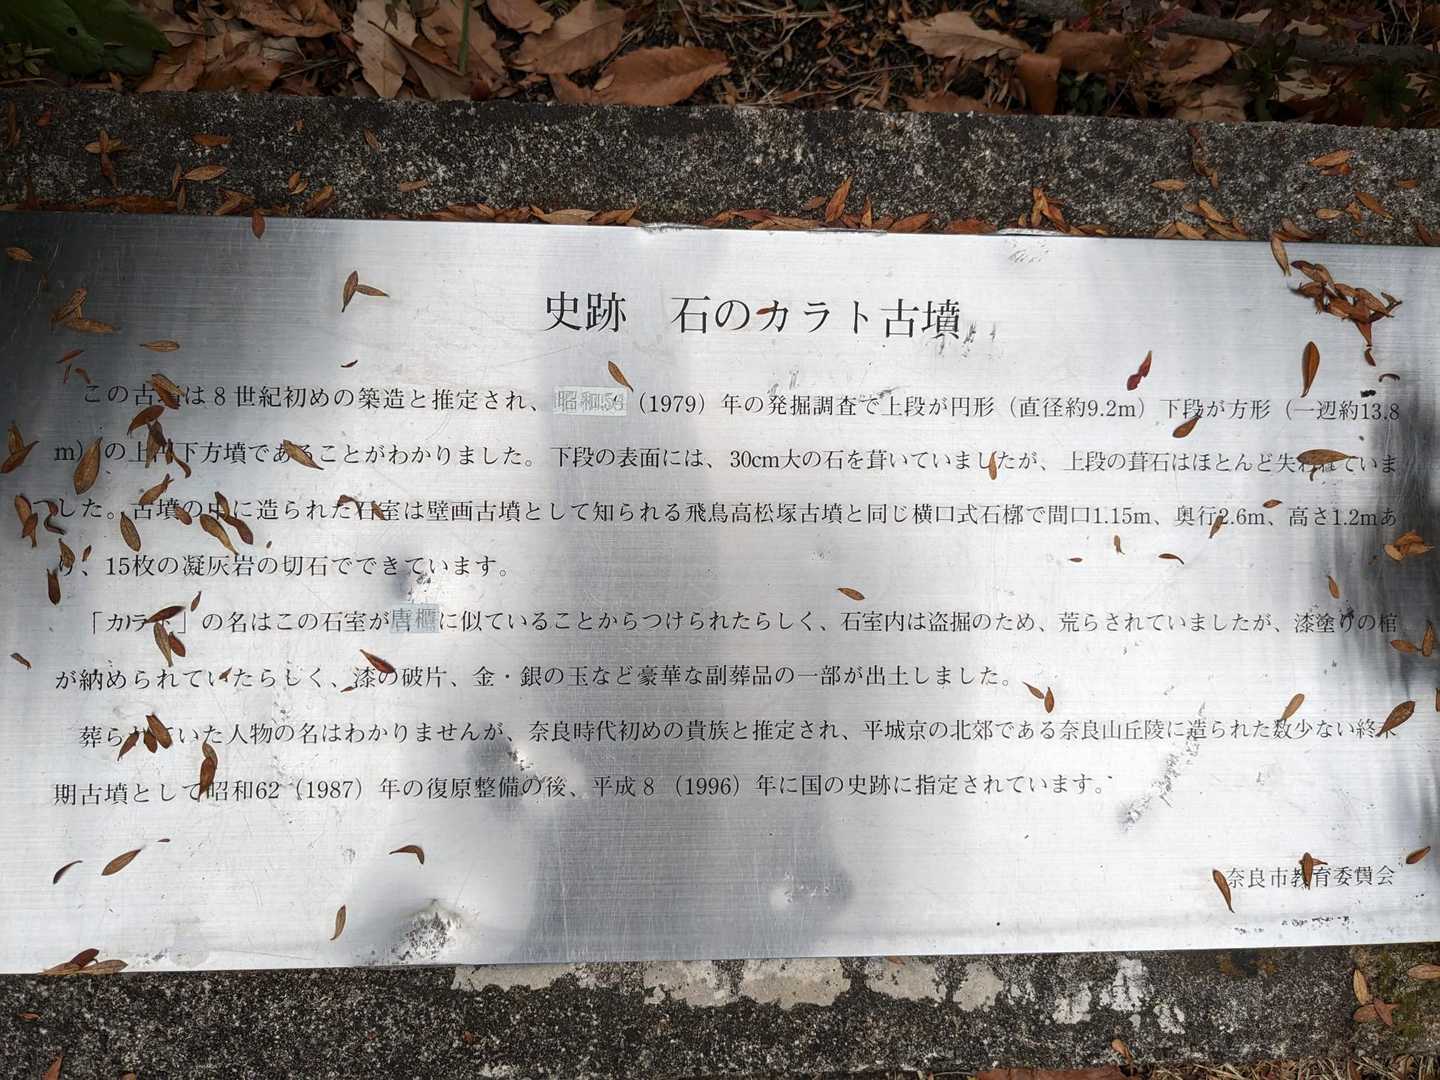 史跡　石のカラト古墳
この古墳は８世紀初めの築造と推定され、昭和54（1979）年の発掘調査で上段が円形（直径約9.2m）下段が方形（一辺約13.8
m）の上円下方墳であることがわかりました。下段の表面には、30cm大の石を葺いていましたが、上段の葺石はほとんど失われていま
した。古墳の中に造られた石室は壁画古墳として知られる飛鳥高松塚古墳と同じ横口式石槨で間口1.15m、奥行2.6m、高さ1.2mあ
り、15枚の凝灰岩の切石でできています。
「カラト」の名はこの石室が唐櫃に似ていることからつけられたらしく、石室内は盗掘のため、荒らされていましたが、漆塗りの棺
が納められていたらしく、漆の破片、金・銀の玉など豪華な副葬品の一部が出土しました。
葬られていた人物の名はわかりませんが、奈良時代初めの貴族と推定され、平城京の北郊である奈良山丘陵に造られた数少ない終末
期古墳として昭和62（1987）年の復原整備の後、平成８（1996）年に国の史跡に指定されています。
奈良市教育委員会